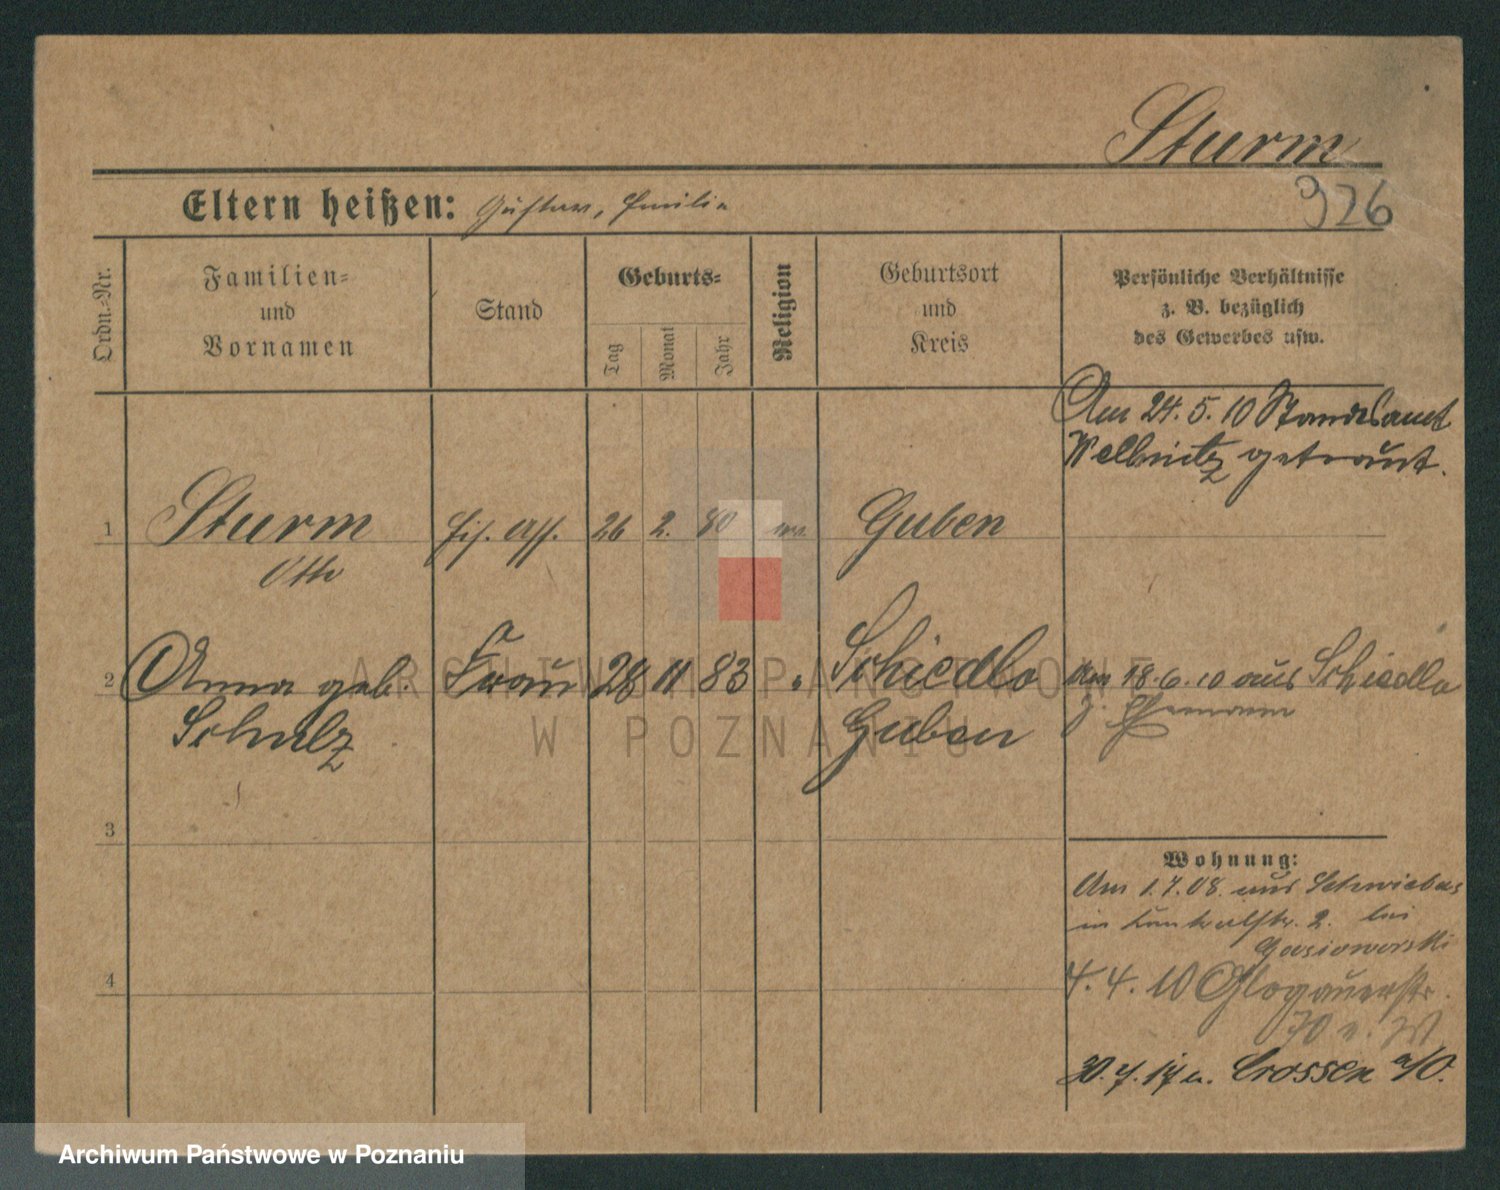 Sturm
926
Eltern heißen: Gustav, Emilie
Ordn.-Nr.
Familien-
und
Vornamen
Stand
Geburts-
Tag
Monat
Jahr
Religion
Geburtsort
und
Kreis
Persönliche Verhältnisse
z. B. bezüglich
des Gewerbes usw.
Am 24. 5. 10 Standesamt
Wellmitz getraut.
1 Sturm Eis. Ass. 26 2. 80 ev. Guben
Otto
2 Anna geb. Frau 28 11 83 " Schiedlo
Schulz Guben
Am 18. 6. 10 aus Schiedlo
z. Ehemann
3
4
Wohnung:
Am 1. 7. 08. aus Schwiebus
in 2. bei
Gasiorowski
4. 10 Glogauerstr.
30. 7. 17 n. Crossen a/O.
ARCHIWUM PAŃSTWOWE
W POZNANIU
Archiwum Państwowe w Poznaniu